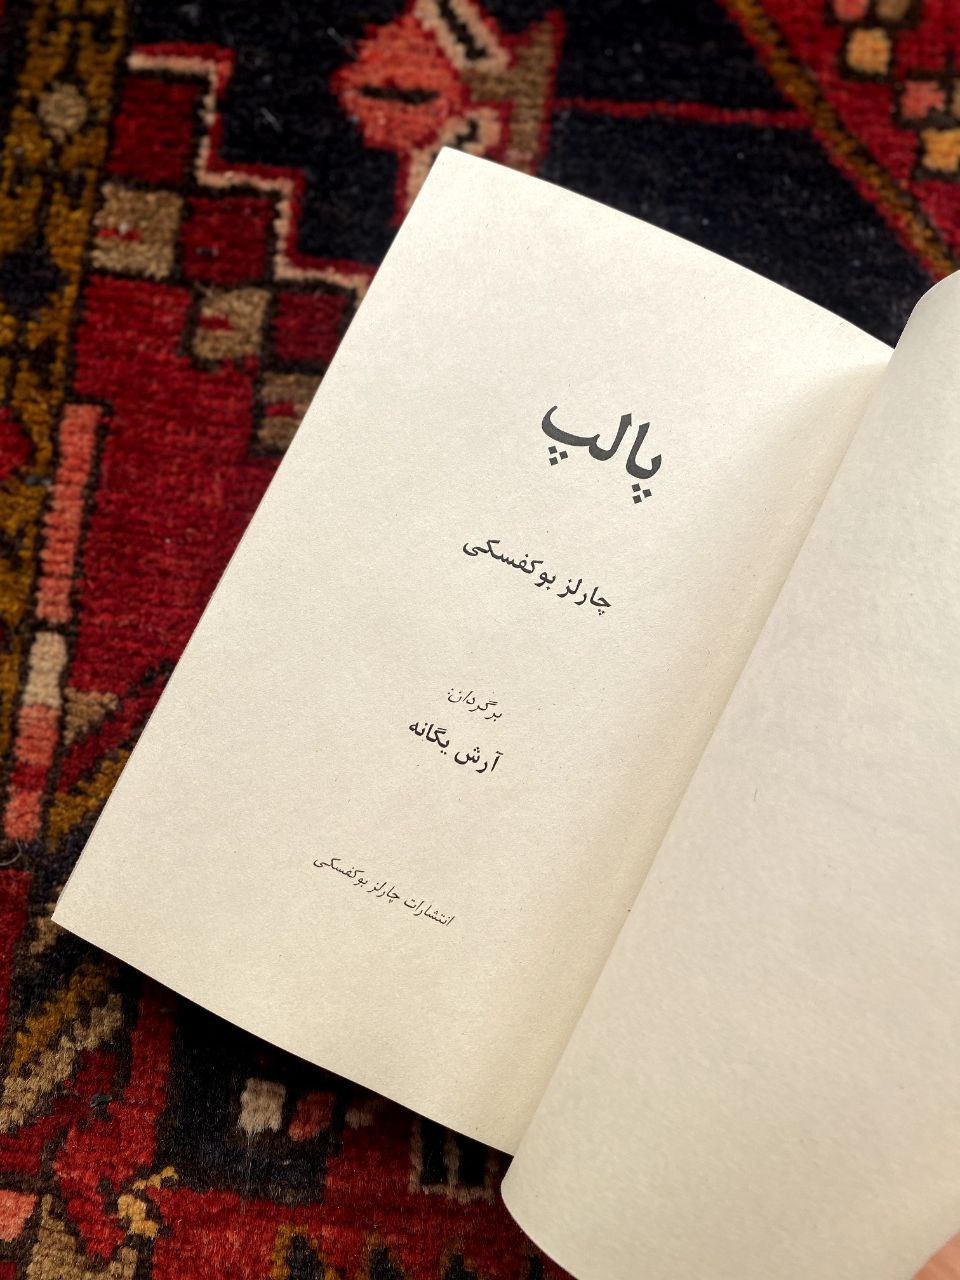 پالپ
چارلز بوکفسکی
برگردان:
آرش یگانه
انتشارات چارلز بوکفسکی